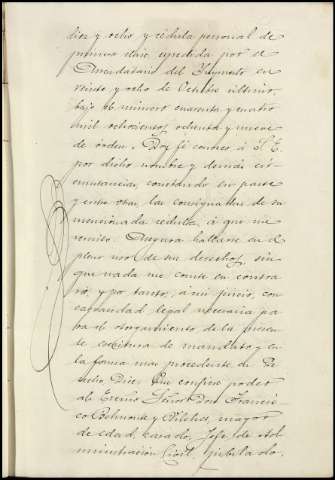 diez y ocho y cédula personal de
primera clase, expedida por el
Arrendatario del Impuesto en
veinte y ocho de Octubre último,
bajo el número cuarenta y cuatro
mil ochocientos ochenta y nueve
de orden. Doy fé conocer á S. E.
por dicho nombre y demás cir-
cunstancias, constando en parte
y entre otras, las consignadas de su
mencionada cédula, á que me
remito. Asegura hallarse en el
pleno uso de sus derechos, sin
que nada me conste en contra
rio, y por tanto, á mi juicio, con
capacidad legal necesaria pa
ra el otorgamiento de la presen
te escritura de mandato, y en
la forma mas procedente de De
recho, Dice: Que confiere poder
al Excmo Señor Don Francis
co Belmonte y Vilches, mayor
de edad, casado, Jefe de Ad
ministración Civil, jubilado,